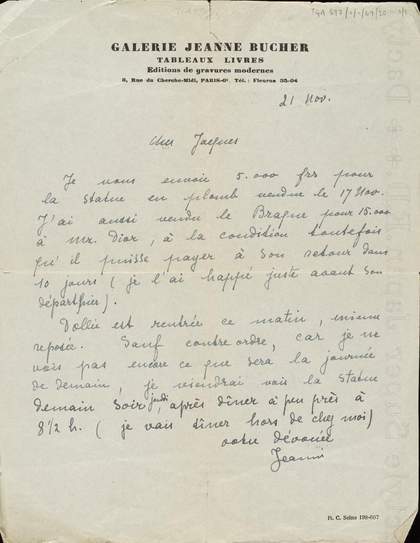 GALERIE JEANNE BUCHER
TABLEAUX LIVRES
Editions de gravures modernes
8, Rue du Cherche-Midi, PARIS-6e Tél. : Fleurus 35-04
21 Nov.
Cher Jacques
Je vous envoie 5.000 frs pour
la statue en plomb vendue le 17 Nov.
J'ai aussi vendu le Braque pour 15.000
à Mr. Dior, à la condition toutefois
qu'il puisse payer à son retour dans
10 jours ( je l'ai happé juste avant son
départ hier).
Dollie est rentrée ce matin, mieux
reposée. Sauf contre ordre, car je ne
vois pas encore ce que sera la journée
de demain, je viendrai voir la statue
demain soir jeudi, après dîner à peu près à
8 1/2 h. ( je vais dîner hors de chez moi)
votre dévouée
Jeanne
R. C. Seine 199-667